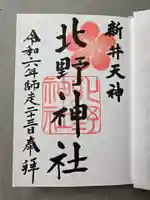 新井天神
北野神社
令和六年師走二十三日奉拝
北野神社